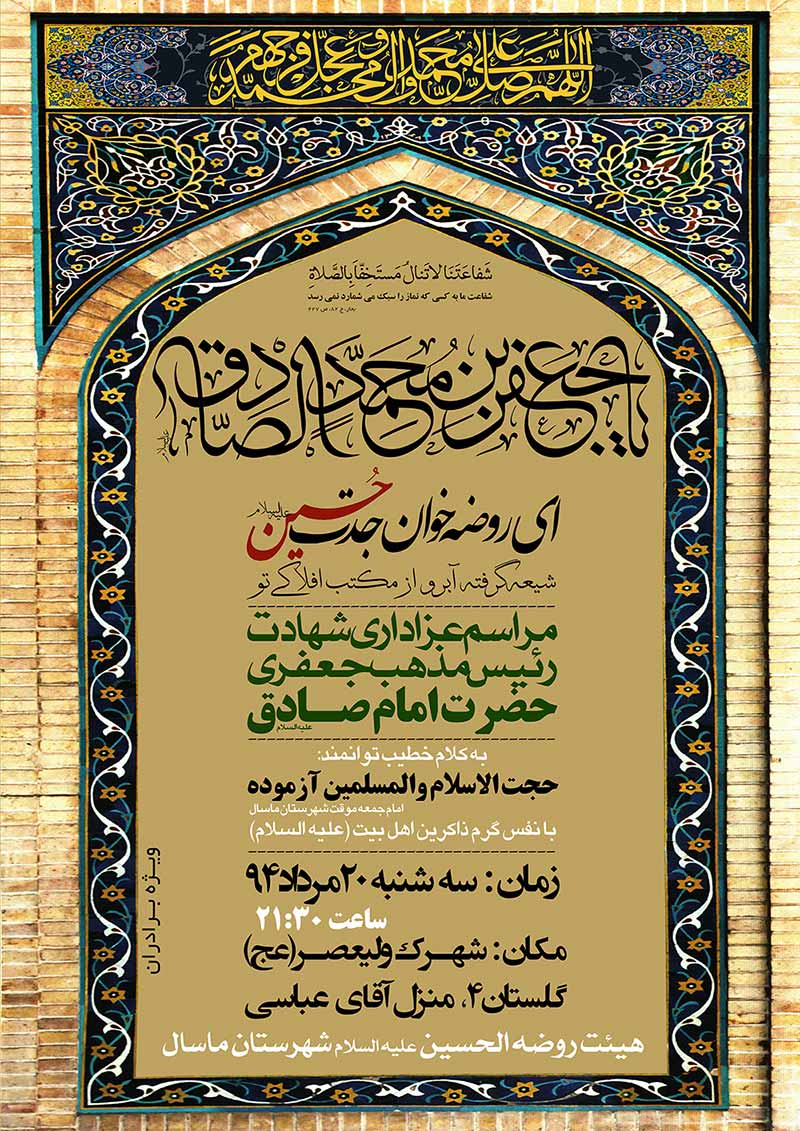 اللهم صل علی محمد وآل محمد وعجل فرجهم
شَفاعَتَنا لاتَنالُ مُستَخِفّاً بِالصَّلاةِ
شفاعت ما به کسی که نماز را سبک می شمارد نمی رسد
بحار، ج ۸۲، ص ۲۲۷
یا جعفر بن محمد الصادق
علیه السلام
ای روضه خوان جدت حسین علیه السلام
شیعه گرفته آبرو از مکتب افلاکی تو
مراسم عزاداری شهادت
رئیس مذهب جعفری
حضرت امام صادق علیه السلام
به کلام خطیب توانمند:
حجت الاسلام والمسلمین آزموده
امام جمعه موقت شهرستان ماسال
با نفس گرم ذاکرین اهل بیت (علیه السلام)
زمان: سه شنبه ۲۰ مرداد ۹۴
ساعت ۲۱:۳۰
مکان: شهرک ولیعصر(عج)
گلستان ۴، منزل آقای عباسی
ویژه برادران
هیئت روضه الحسین علیه السلام شهرستان ماسال